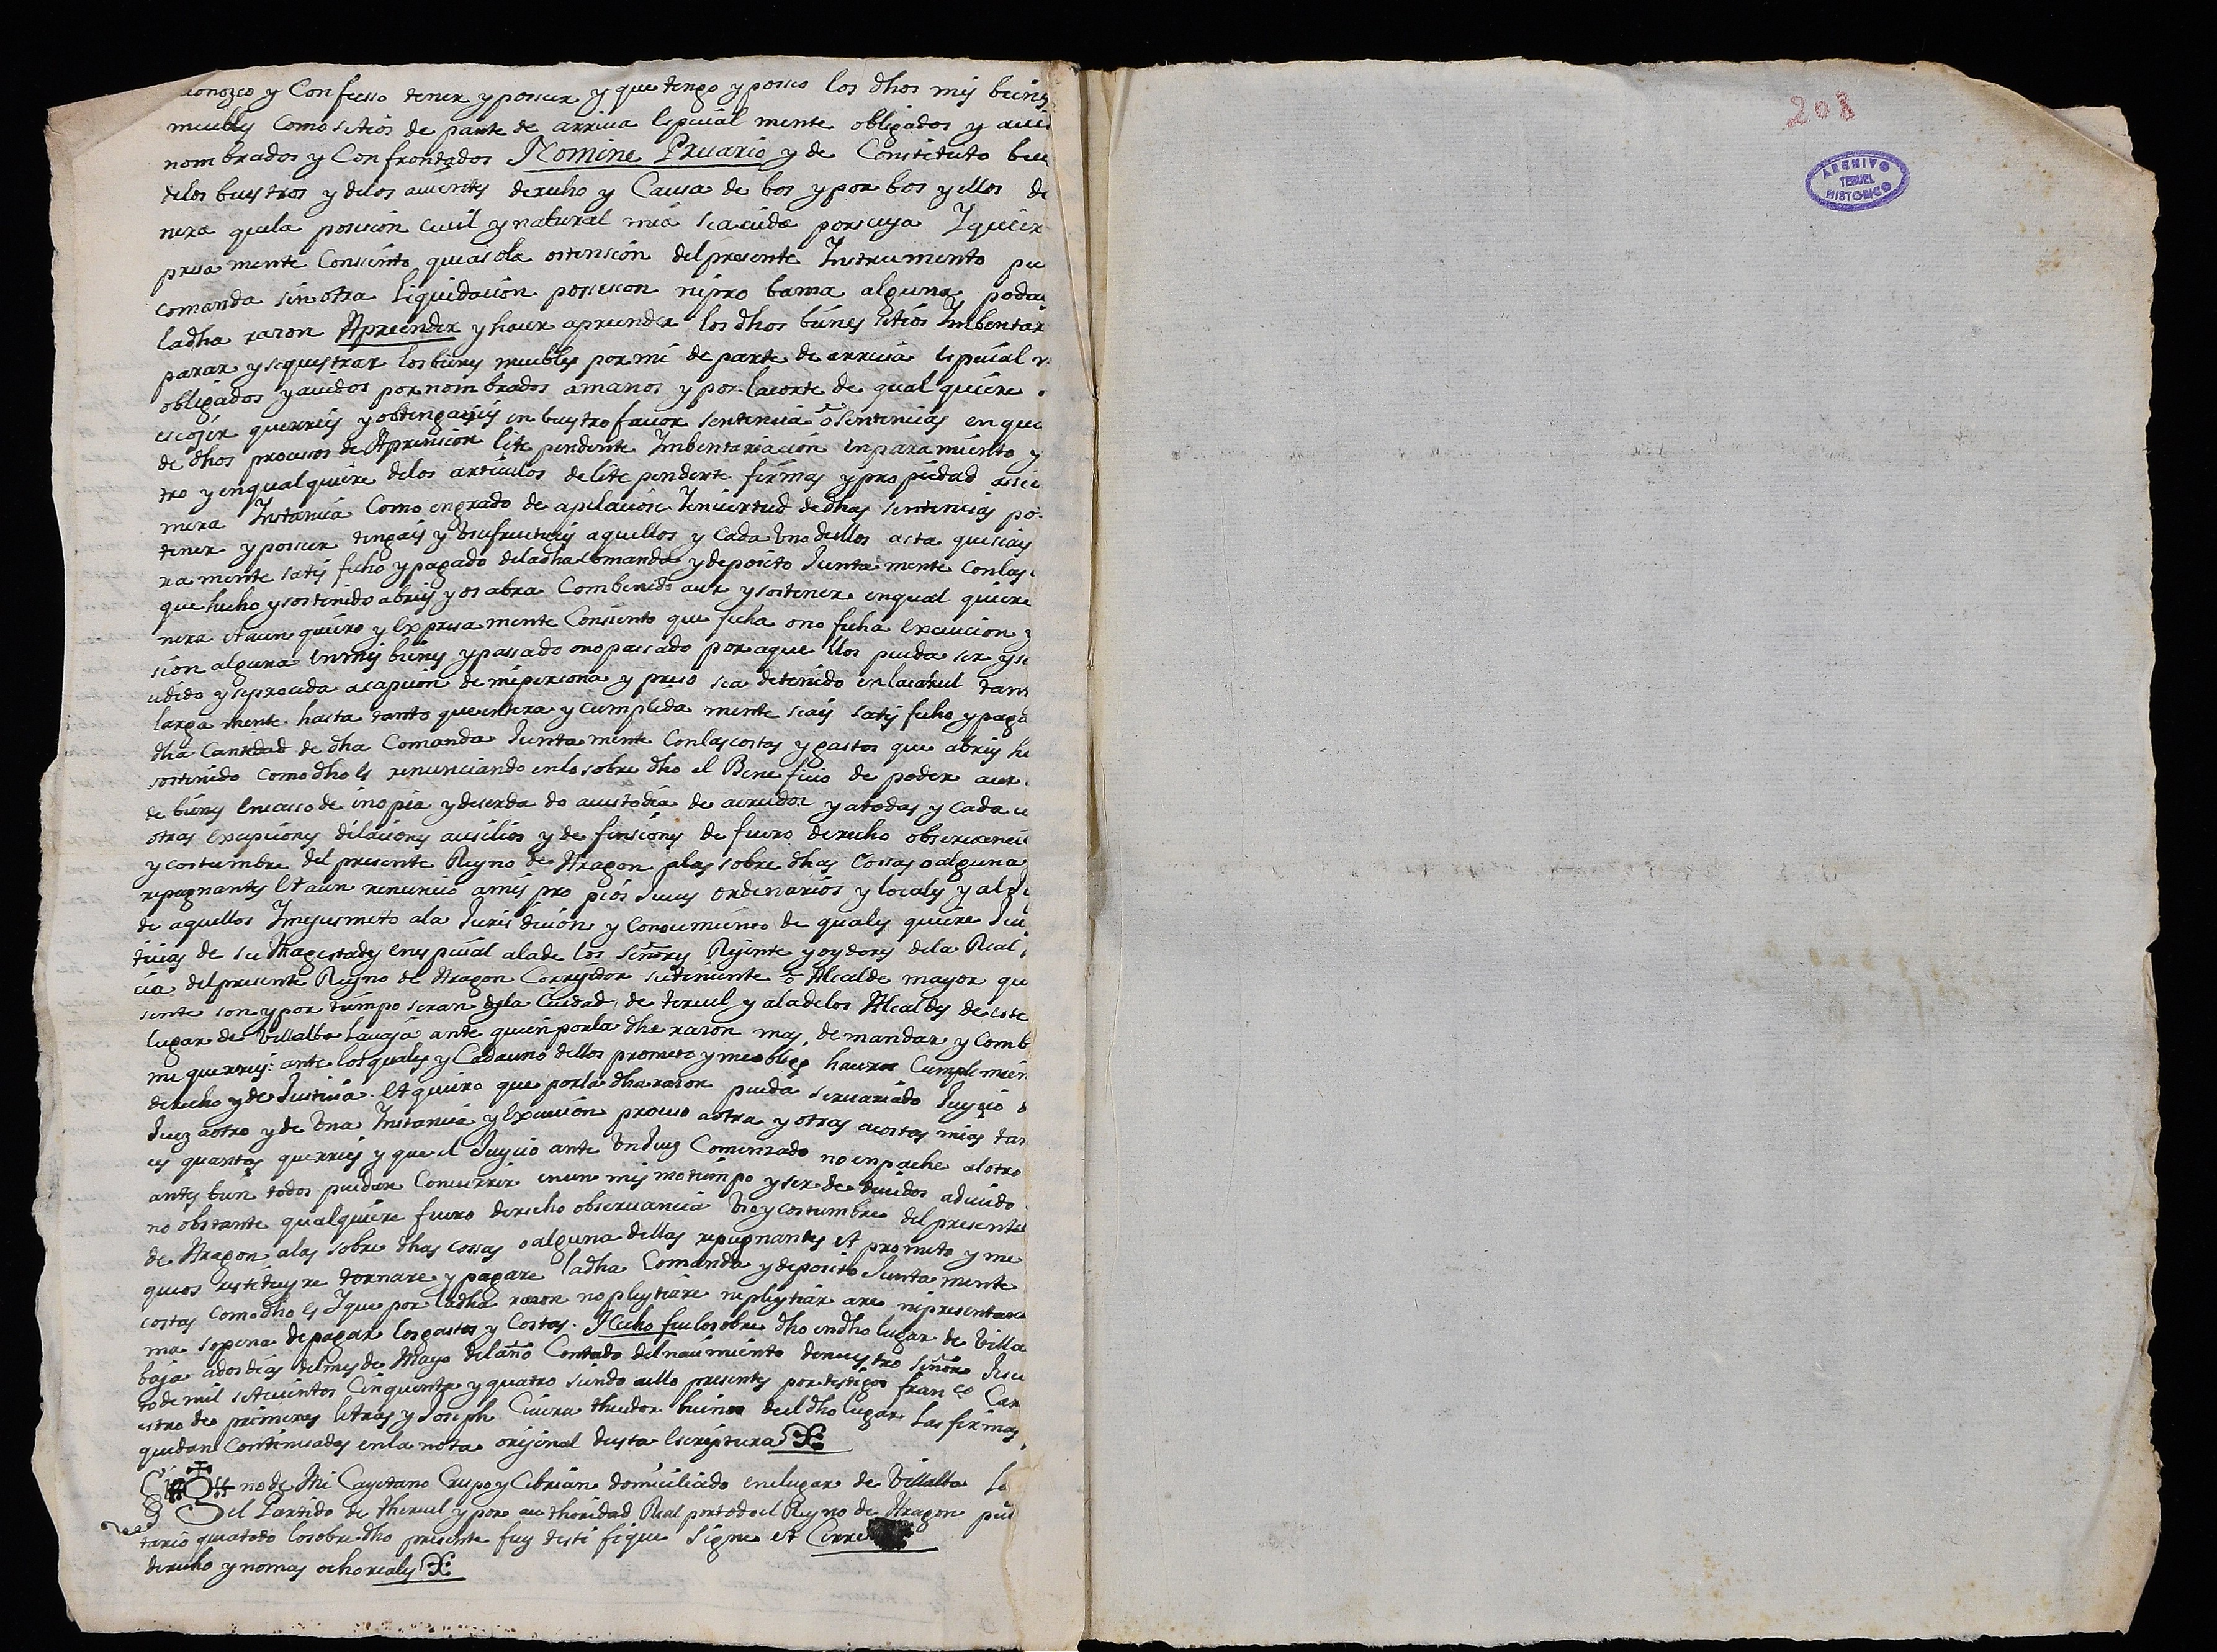 conozco y Confiesso tener y posseer y que tengo y posseo los dhos mis bienes
muebles como sitios de parte de arriua especial mente obligados y auidos
nombrados y Confrontados Nomine Precario y de Constituto bue
delos buestros y delos auientes derecho y Causa de bos y por bos y ellos de
nera quela posesion ciuil y natural mia sea auida por suya Y quier
presa mente Consiento que a sola ostension del presente Instrumento pu
comanda sin otra liquidacion possesion ni pro banza alguna podai
la dha razon Apreender y hacer apreender los dhos bienes sitios Imbentar
parar y sequestrar los bienes muebles por mi de parte de arriua especial m
obligados y auidos por nombrados a manos y por la corte de qual quiere
escojer querreis y obtengaiis en buestro fauor sentencia ò sentencias en que
de dhos processos de Aprension lite pendente Imbentariacion enparamiento y
tro y en qual quiere delos articulos de lite pendente firmas y propiedad assi
mera Instancia Como en grado de apelacion Y en uirtud de dhas sentencias po
tener y posseer tengais y Vsufructueis aquellos y Cada Vno de ellos asta que seais
ra mente satis fecho y pagado de la dha Comanda y deposito Junta mente Con las
que hecho y sostenido abreis y os abra Combenido auer y sostener en qual quiere
nera et aun quiero y Expresa mente Consiento que fecha o no fecha Execucion y
sion alguna en mis bienes y passado o no passado por aque llos pueda ser y se
cidido y se proceda a capcion de mi persona y preso sea detenido en la carcel tan
larga mente hasta tanto que entera y cumplida mente seais satis fecho y paga
dha Cantidad de dha Comanda Junta mente Con las costas y gastos que abreis he
sostenido como dho es renunciando en lo sobre dho el Bene ficio de poder auer
de bienes En casso de inopia y deserda do a custodia de acredor y a todas y cada u
otras Excepciones dilaciones ausilios y de fensiones de fuero derecho obseruanci
y costumbre del presente Reyno de Aragon alas sobre dhas Cossas o alguna
repugnantes Et aun renuncio a mis pro pios Jueces ordinarios y locales y al Ju
de aquellos Y me jusmeto ala Juris dicion y conocimiento de quales quiere Jue
ticias de su Magestad y en especial ala de los Señores Rejente y oydores dela Real
cia del presente Reyno de Aragon Correjidor su teniente ò Alcalde mayor que
sente son y por tiempo seran dela Ciudad de teruel y ala de los Alcaldes de este
lugar de Villalba La uaja ante quien por la dha razon mas de mandar y Comb
me querreis: ante los quales y Cada uno de llos prometo y me obligo haceros Cumplimien
derecho y de Justicia. Et quiero que por la dha razon pueda ser uariado Juycio d
Juez a otro y de Vna Instancia y Execucion proceso a otra y otras a costas mias tan
es quantas querreis y que el Juycio ante Vn Juez Comenzado no enpache al otro
antes bien todos puedan Concurrir en un mis mo tiempo y ser de ducidos a deuido
no obstante qualquiere fuero derecho obseruancia Vso y costumbre del presente
de Aragon alas sobre dhas cossas o alguna dellas repugnantes et prometo y me
que os restituyre tornare y pagare la dha Comanda y deposito Junta mente
costas como dho es Y que por la dha razon no pleytiare ni pleytiar are ni presentare
ma so pena de pagar los gastos y Costas. Hecho fue lo sobre dho en dho lugar de Villa
baja a dos dias del mes de Mayo del año Contado del nacimiento de nuestro señor Jesu
to de mil setecientos Cinquenta y quatro siendo a ello presentes por testigos franco Car
estro de primeras letras y Joseph Ciuera thexedor becinos del dho lugar las firmas
quedan Continuadas en la nota orijinal desta Escriptura
no de Mi Cayetano Crespo y Cebrian domiciliado en lugar de Villalba La
del Partido de theruel y por authoridad Real por todo el Reyno de Aragon pub
tario que a todo lo sobre dho presente fuy testi fique signe et Cerre
derecho y no mas ocho reales
208
ARCHIVO
TERUEL
HISTORICO